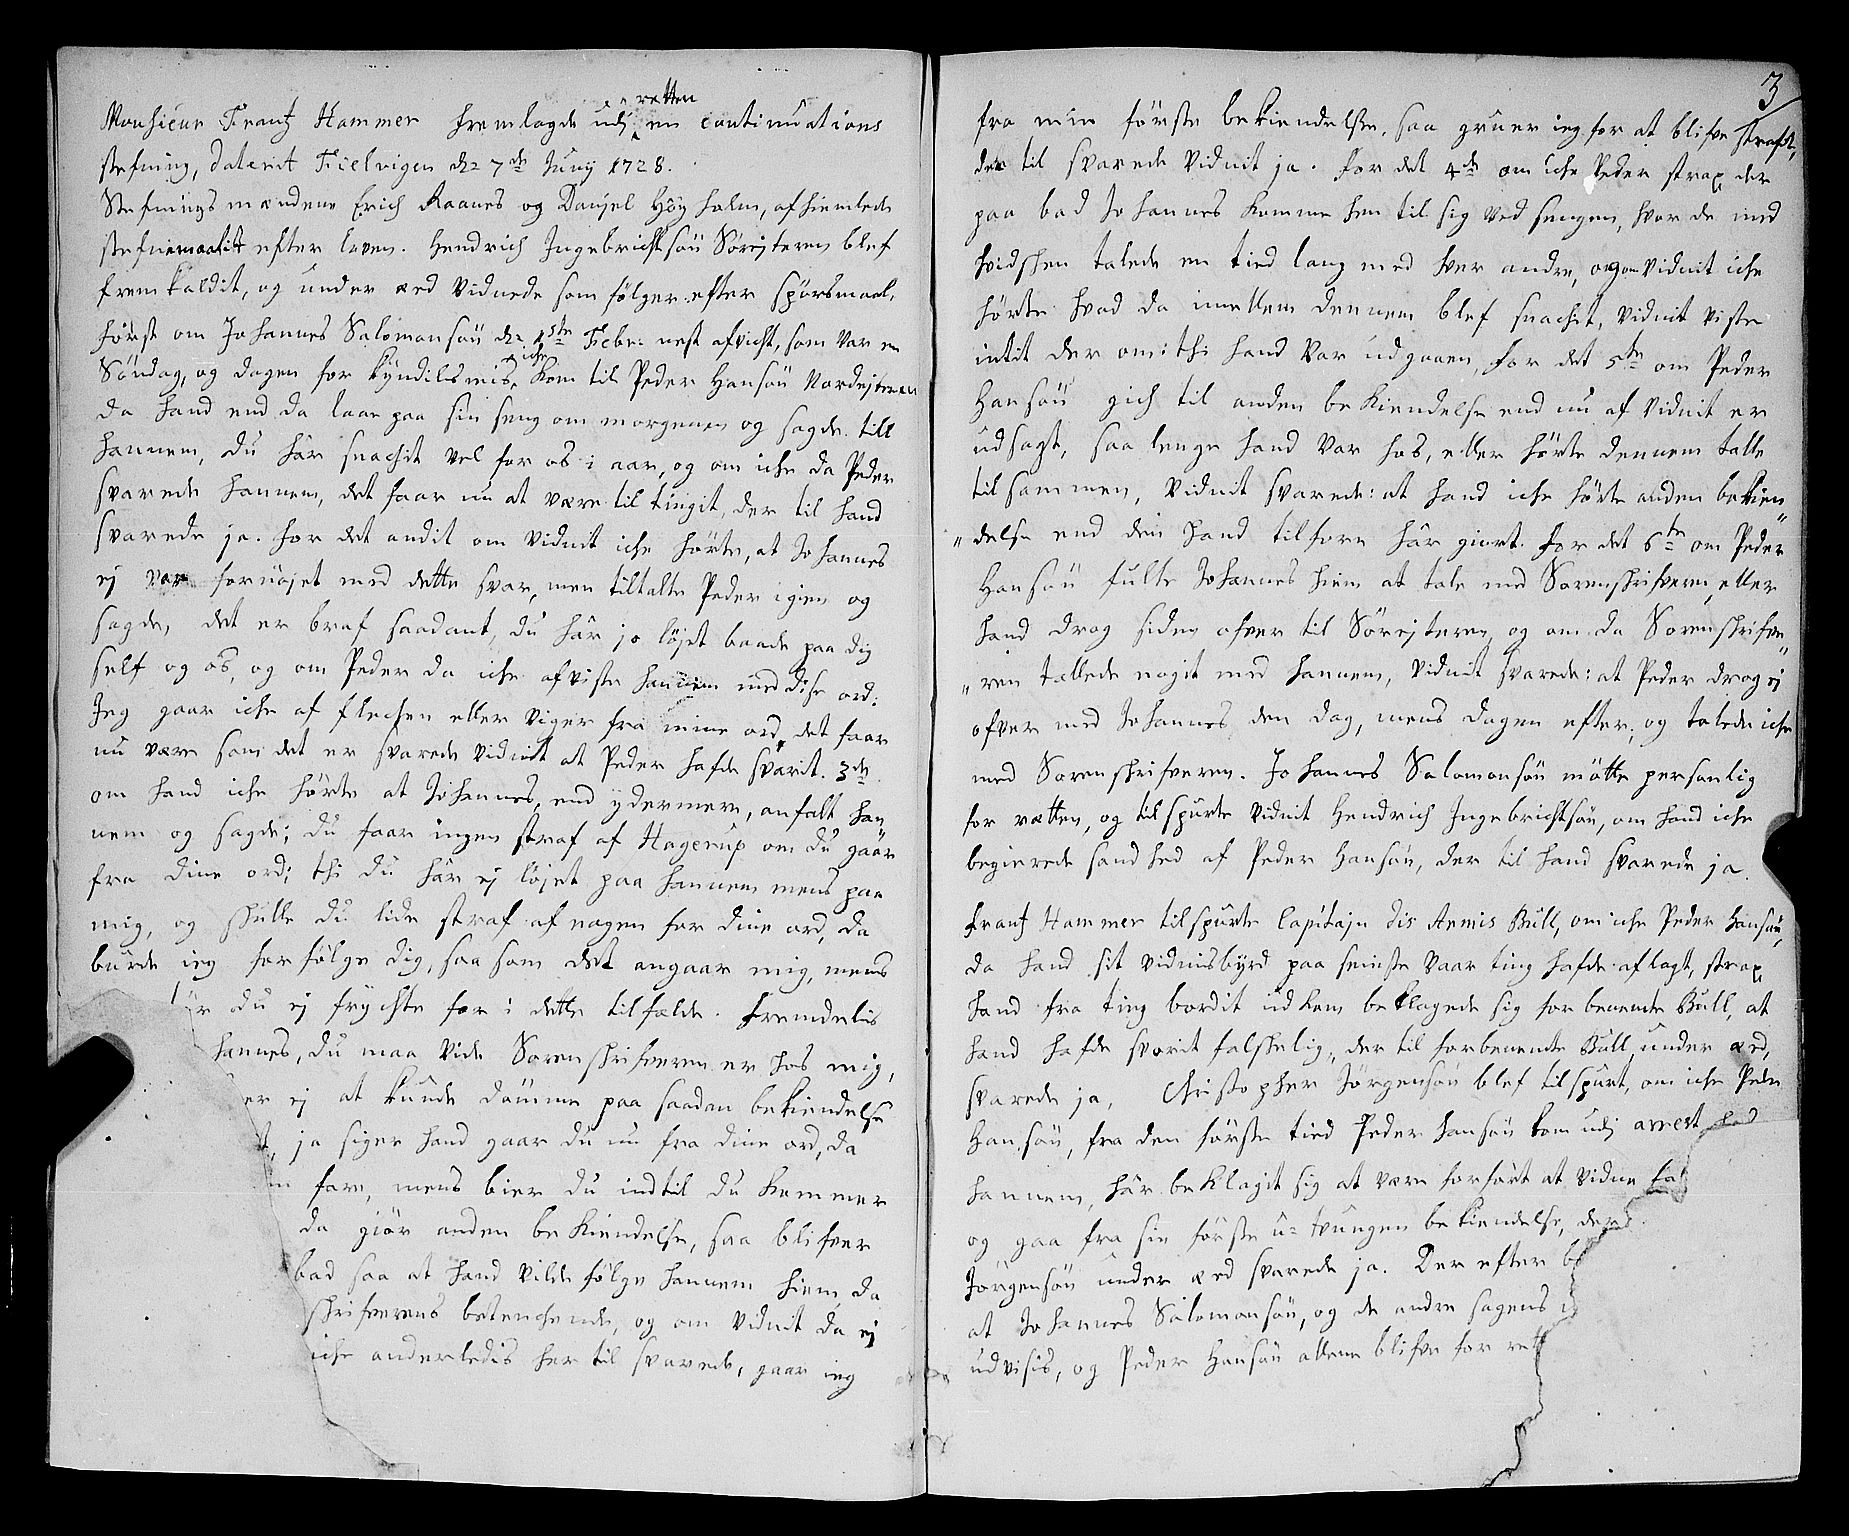 Monsieur Frantz Hammer fremlagde udj retten en continuations
stefning, daterit Fielvigen d: 7de Junij 1728.
Stefnings mændene Erich Raanes og Danjel Höyholm, afhiemlede
stefnemaalit efter loven. Hendrich Ingebrichtsöu Sörejteren blef
fremkaldit, og under æed vidnede som fölger efter spörsmaal,
först om Johannes Salomonsöu d: 1ste Febr: nest afvicht, som var en
Söndag, og dagen for kyndilsmis, iche kom til Peder Hansöu Nordejteren
da hand end da laae paa sin seng om morgenen og sagde till
hannem, du här snachit vel for os i aar, og om iche da Peder
svarede hannem, det faar nu at være til tingit, der til hand
svarede ja. for det andit om vidnit iche hörte, at Johannes
ej var fornöjet med dette svar, men tiltalte Peder igien og
sagde, det er braf saadant, du här jo löjet baade paa dig
self og os, og om Peder da iche afviste hannem med dise ord:
Jeg gaar iche af flechen eller viger fra mine ord, det faar
nu være som det er svarede vidnit at Peder hafde svarit. 3de
om hand iche hörte at Johannes, end ydermere, anfalt han
nem og sagde; du faar ingen straf af Hagerup om du gaar
fra dine ord; thi du här ej löjet paa hannem mens paa
mig, og skulle du lide straf af nogen for dine ord, da
burde ieg forfölge dig, saa som det angaar mig, mens
du ej frychte for i dette tilfælde. fremdelis
hannes, du maa vide Sorenskrifveren er hos mig,
er ej at kunde dömme paa saadan bekiendelse
ja siger hand gaar du nu fra dine ord, da
fare, mens bier du indtil du kommer
da giör anden bekiendelse, saa blifver
bad saa at hand vilde fölge hannem hiem, da
skrifverens betenchende, og om vidnit da ej
iche anderledis her til svarede, gaar ieg
3
fra min förste bekiendelse, saa gruer ieg for at blifve straft,
der til svarede vidnit ja. for det 4de om iche Peder strax der
paa bad Johannes komme hen til sig ved sengen, hvor de med
hvidshen talede en tied lang med hver andre, og om vidnit iche
hörte hvad da imellem dennem blef snachit, vidnit viste
intit der om: thi hand var udgaaen, for det 5te om Peder
Hansöu gich til anden bekiendelse end nu af vidnit er
udsagt, saa lenge hand var hos, eller hörte dennem talle
tilsammen, vidnit svarede: at hand iche hörte anden bekien„
„delse end den hand tilforn här giort. for det 6te om Peder
Hansöu fulte Johannes hiem at tale med Sorenskrifveren, eller
hand drog siden ofver til Sörejteren, og om da Sorenskrifve„
„ren tallede nogit med hannem, vidnit svarede: at Peder drog ej
ofver med Johannes den dag, mens dagen efter, og talede iche
med Sorenskrifveren. Johannes Salomonsöu mötte personlig
for retten, og tilspurte vidnit Hendrich Ingebrichtsöu, om hand iche
begierede sandhed af Peder Hansöu, der til hand svarede ja.
Frantz Hammer tilspurte Capitajn dis Armis Bull, om iche Peder Hansöu,
da hand sit vidnisbyrd paa seinste vaar ting hafde aflagt, strax
hand fra ting bordit udkom beklagede sig for benente Bull, at
hand hafde svorit falskelig, der til forbenente Bull under æed,
svarede ja, Christopher Jörgensöu blef tilspurt, om iche Peder
Hansöu, fra den förste tied Peder Hansöu kom udj arrest hos
hannem, här beklagit sig at være forfört at vidne fal
og gaa fra sin förste u-tvungen bekiendelse, der
Jörgensöu under æed svarede ja. Der efter b
at Johannes Salomonsöu, og de andre sagens
udvisis, og Peder Hansöu allene blifve for rett